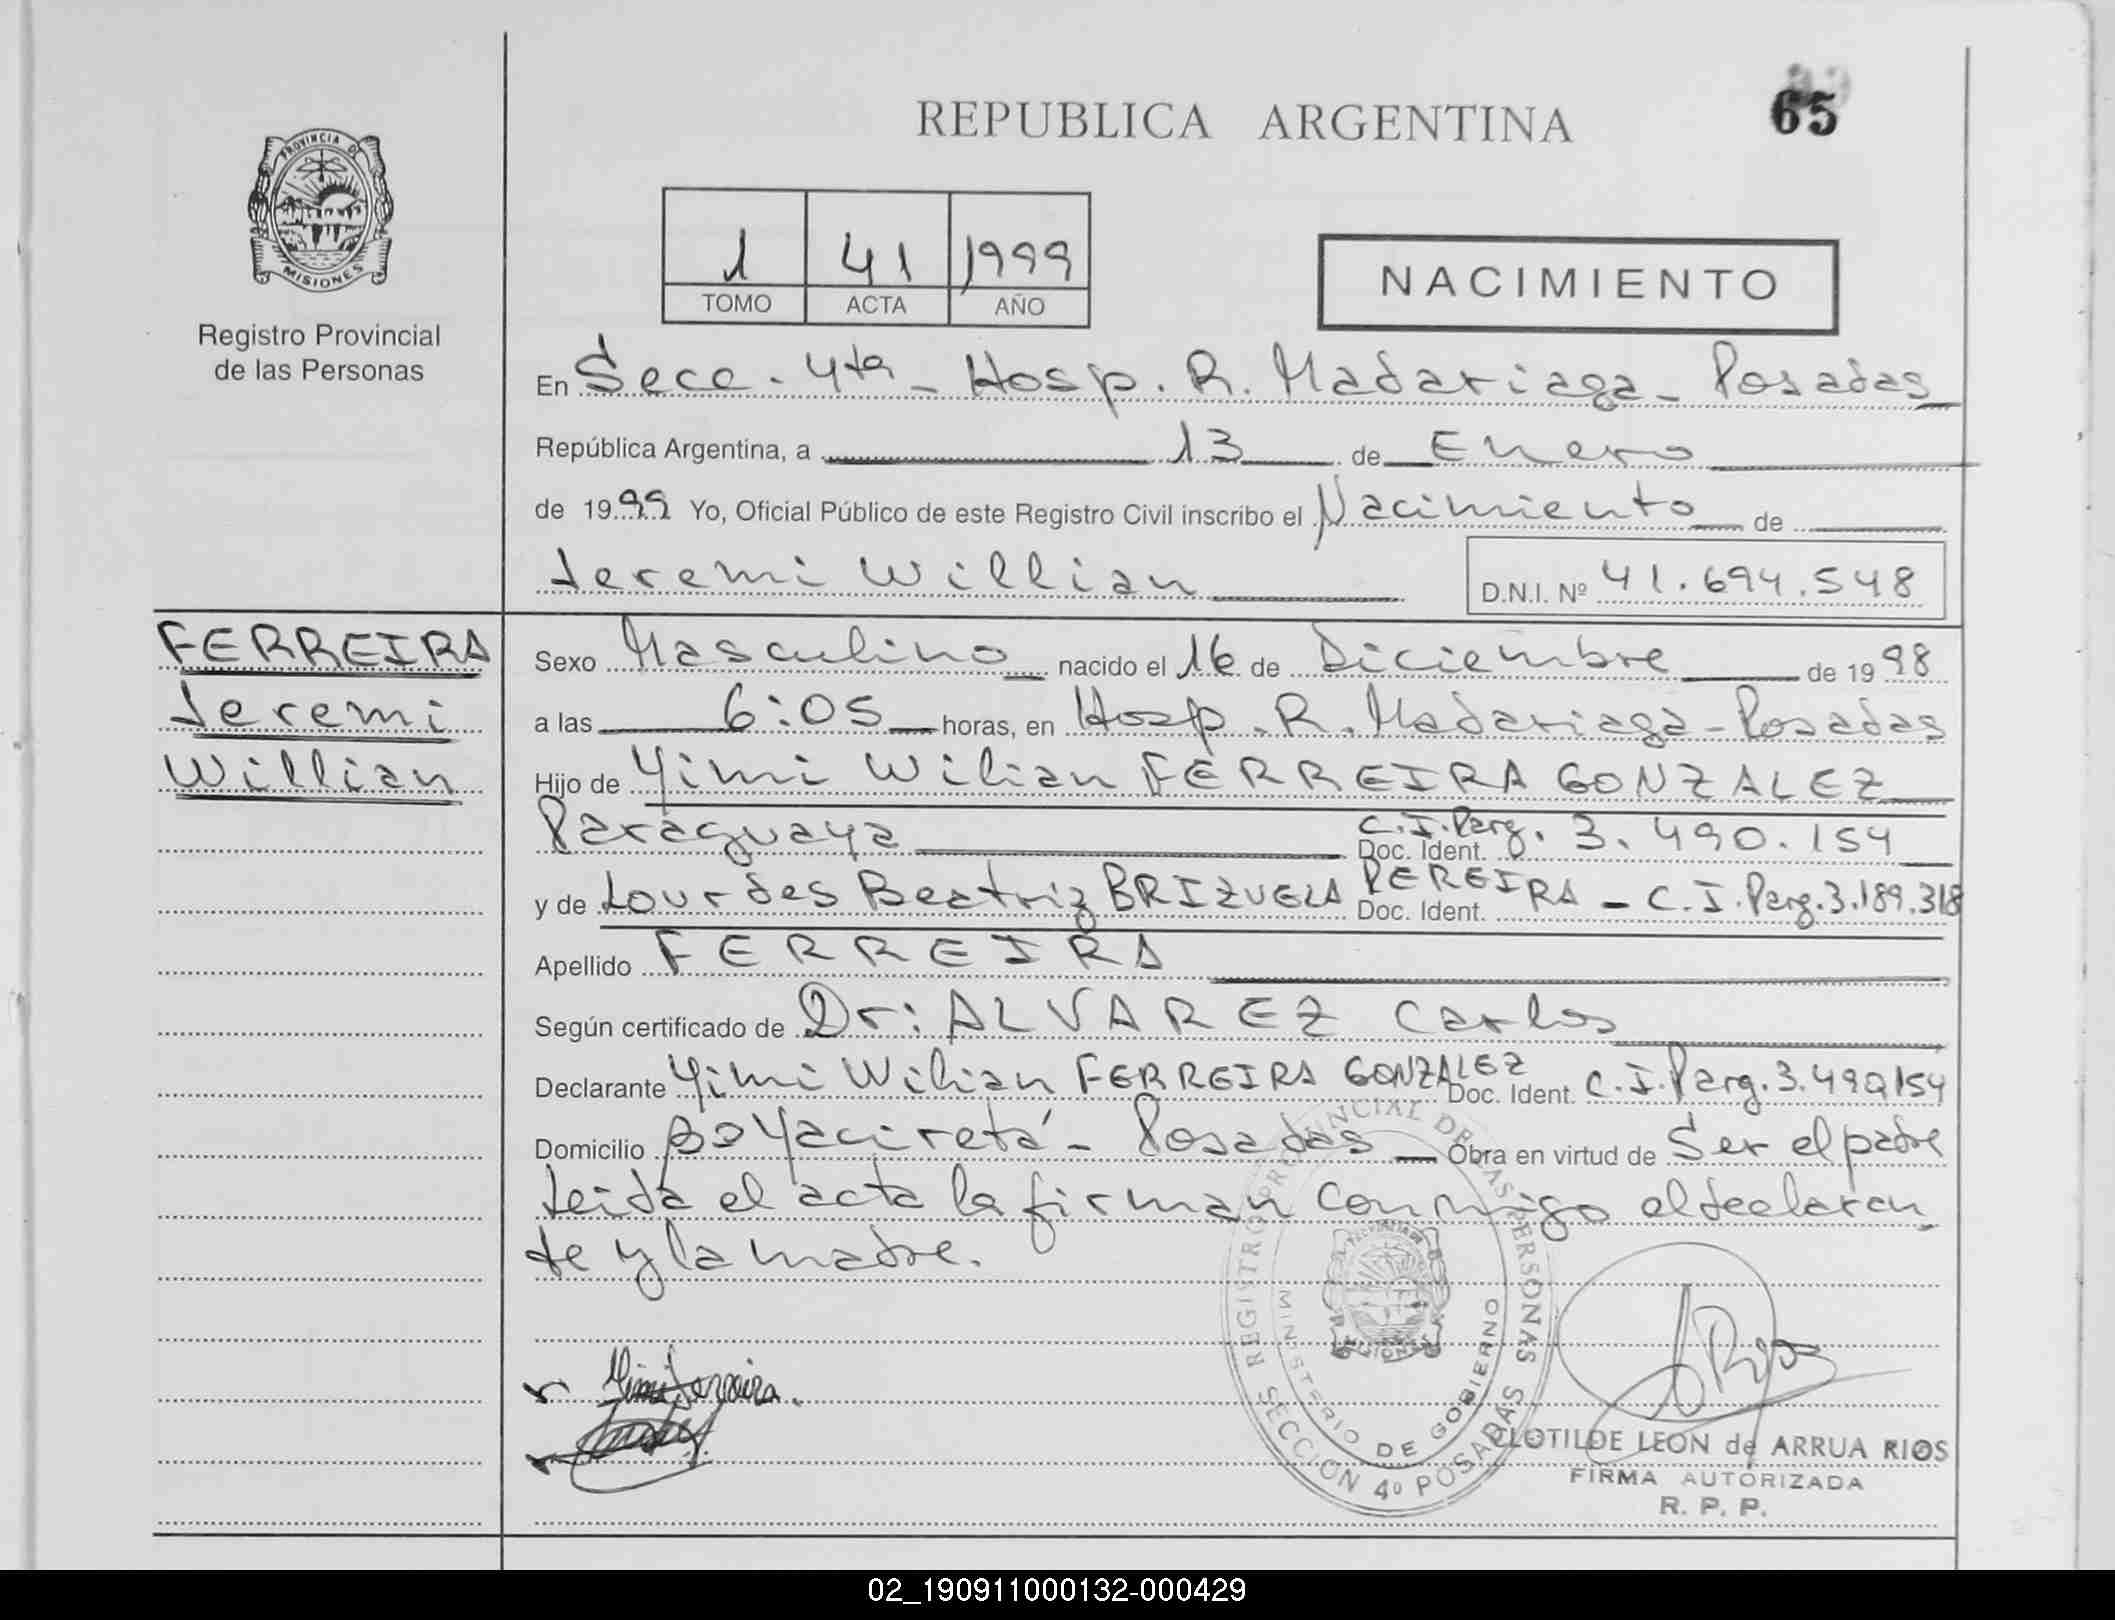 REPUBLICA ARGENTINA
65
PROVINCIA DE
MISIONES
Registro Provincial
de las Personas
1 41 1999
TOMO ACTA AÑO
NACIMIENTO
En Secc. 4ta - Hosp. R. Madariaga - Posadas
República Argentina, a 13 de Enero
de 1999 Yo, Oficial Público de este Registro Civil inscribo el Nacimiento de
Jeremi Willian D.N.I. Nº 41.694.548
FERREIRA
Jeremi
Willian
Sexo Masculino nacido el 16 de Diciembre de 1998
a las 6:05 horas, en Hosp. R. Madariaga - Posadas
Hijo de Yimi Wilian FERREIRA GONZALEZ
Paraguaya Doc. Ident. C.I. Parg. 3.490.154
y de Lourdes Beatriz BRIZUELA PEREIRA - Doc. Ident. C.I. Parg. 3.189.318
Apellido FERREIRA
Según certificado de Dr: ALVAREZ Carlos
Declarante Yimi Wilian FERREIRA GONZALEZ Doc. Ident. C.I. Parg. 3.490154
Domicilio Bº Yacireta - Posadas Obra en virtud de Ser el padre
Leida el acta la firman conmigo el declaran
te y la madre.
Yimi Ferreira.
REGISTRO PROVINCIAL DE LAS PERSONAS
SECCION 4º POSADAS
MINISTERIO DE GOBIERNO
MISIONES
CLOTILDE LEON de ARRUA RIOS
FIRMA AUTORIZADA
R. P. P.
02_190911000132-000429